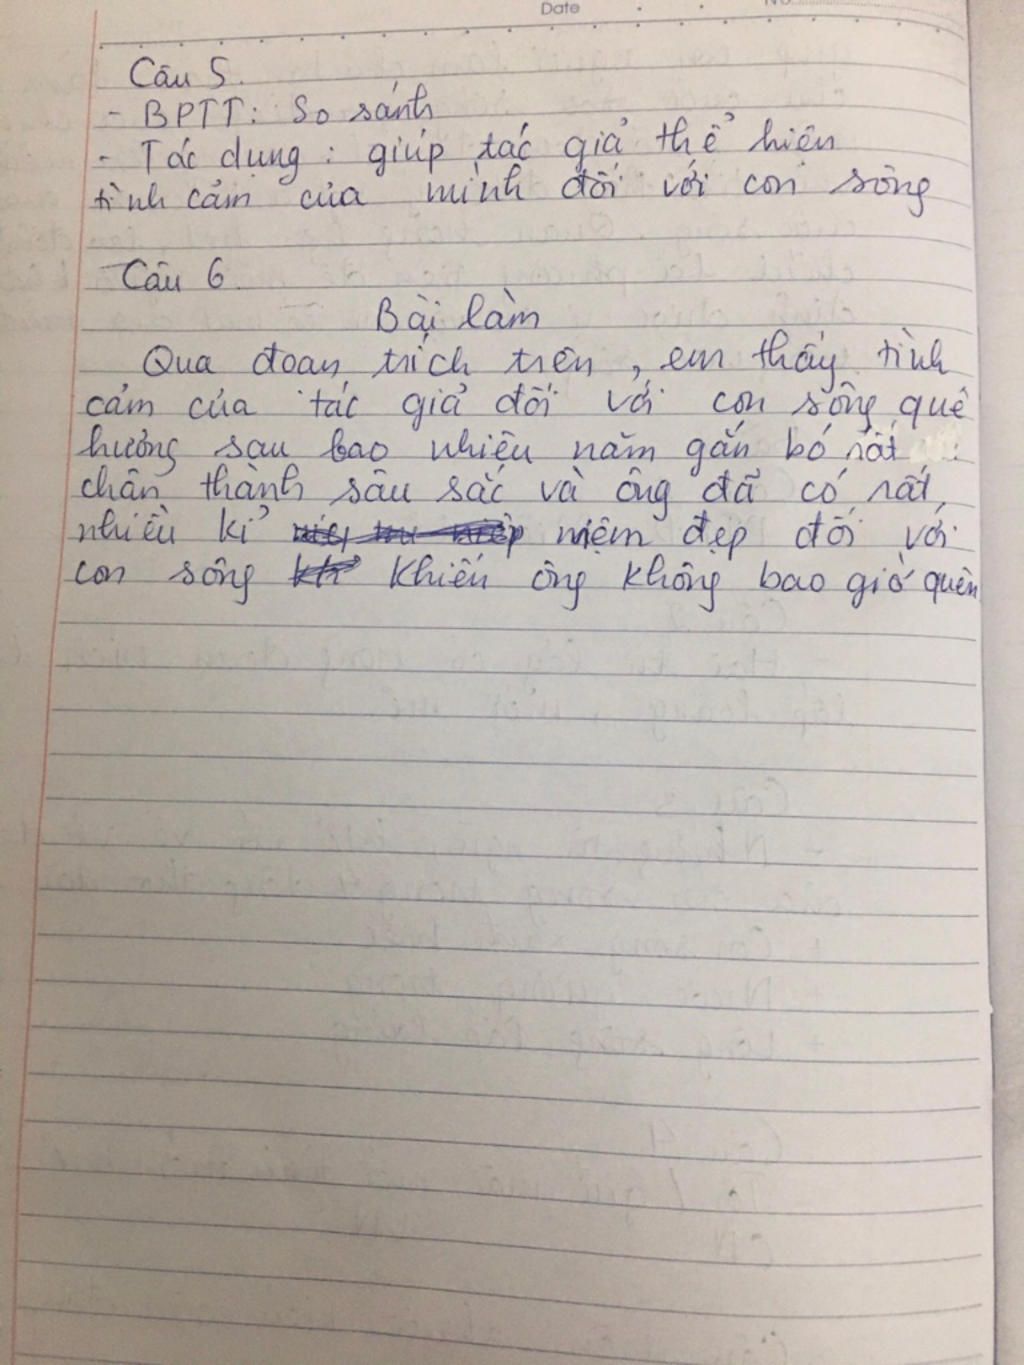 Date
No
Câu 5.
- BPTT: So sánh
- Tác dụng: giúp tác giả thể hiện
tình cảm của mình đối với con sông
Câu 6
Bài làm
Qua đoạn trích trên, em thấy tình
cảm của tác giả đối với con sông quê
hương sau bao nhiêu năm gắn bó rất
chân thành sâu sắc và ông đã có rất
nhiều kỉ niệm đẹp đối với
con sông khiến ông không bao giờ quên